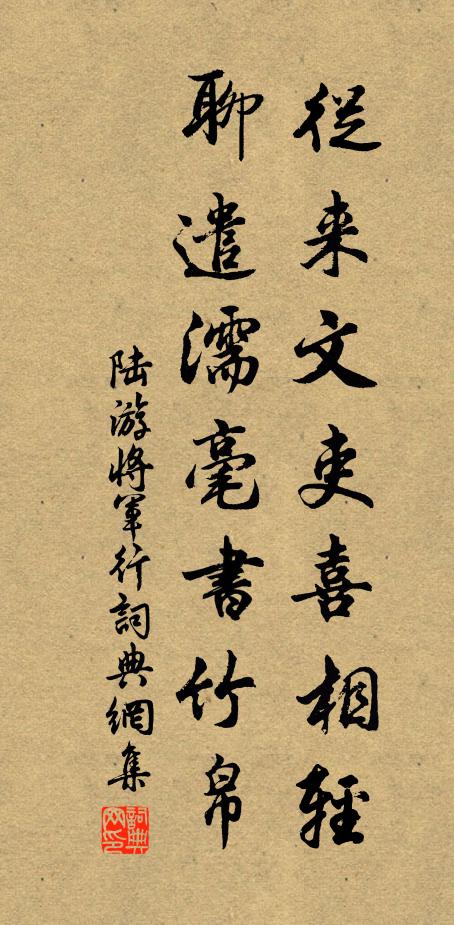 從来文吏喜相輕
聊遣濡毫書竹帛
陆游將軍行詞典網集
詞典网印